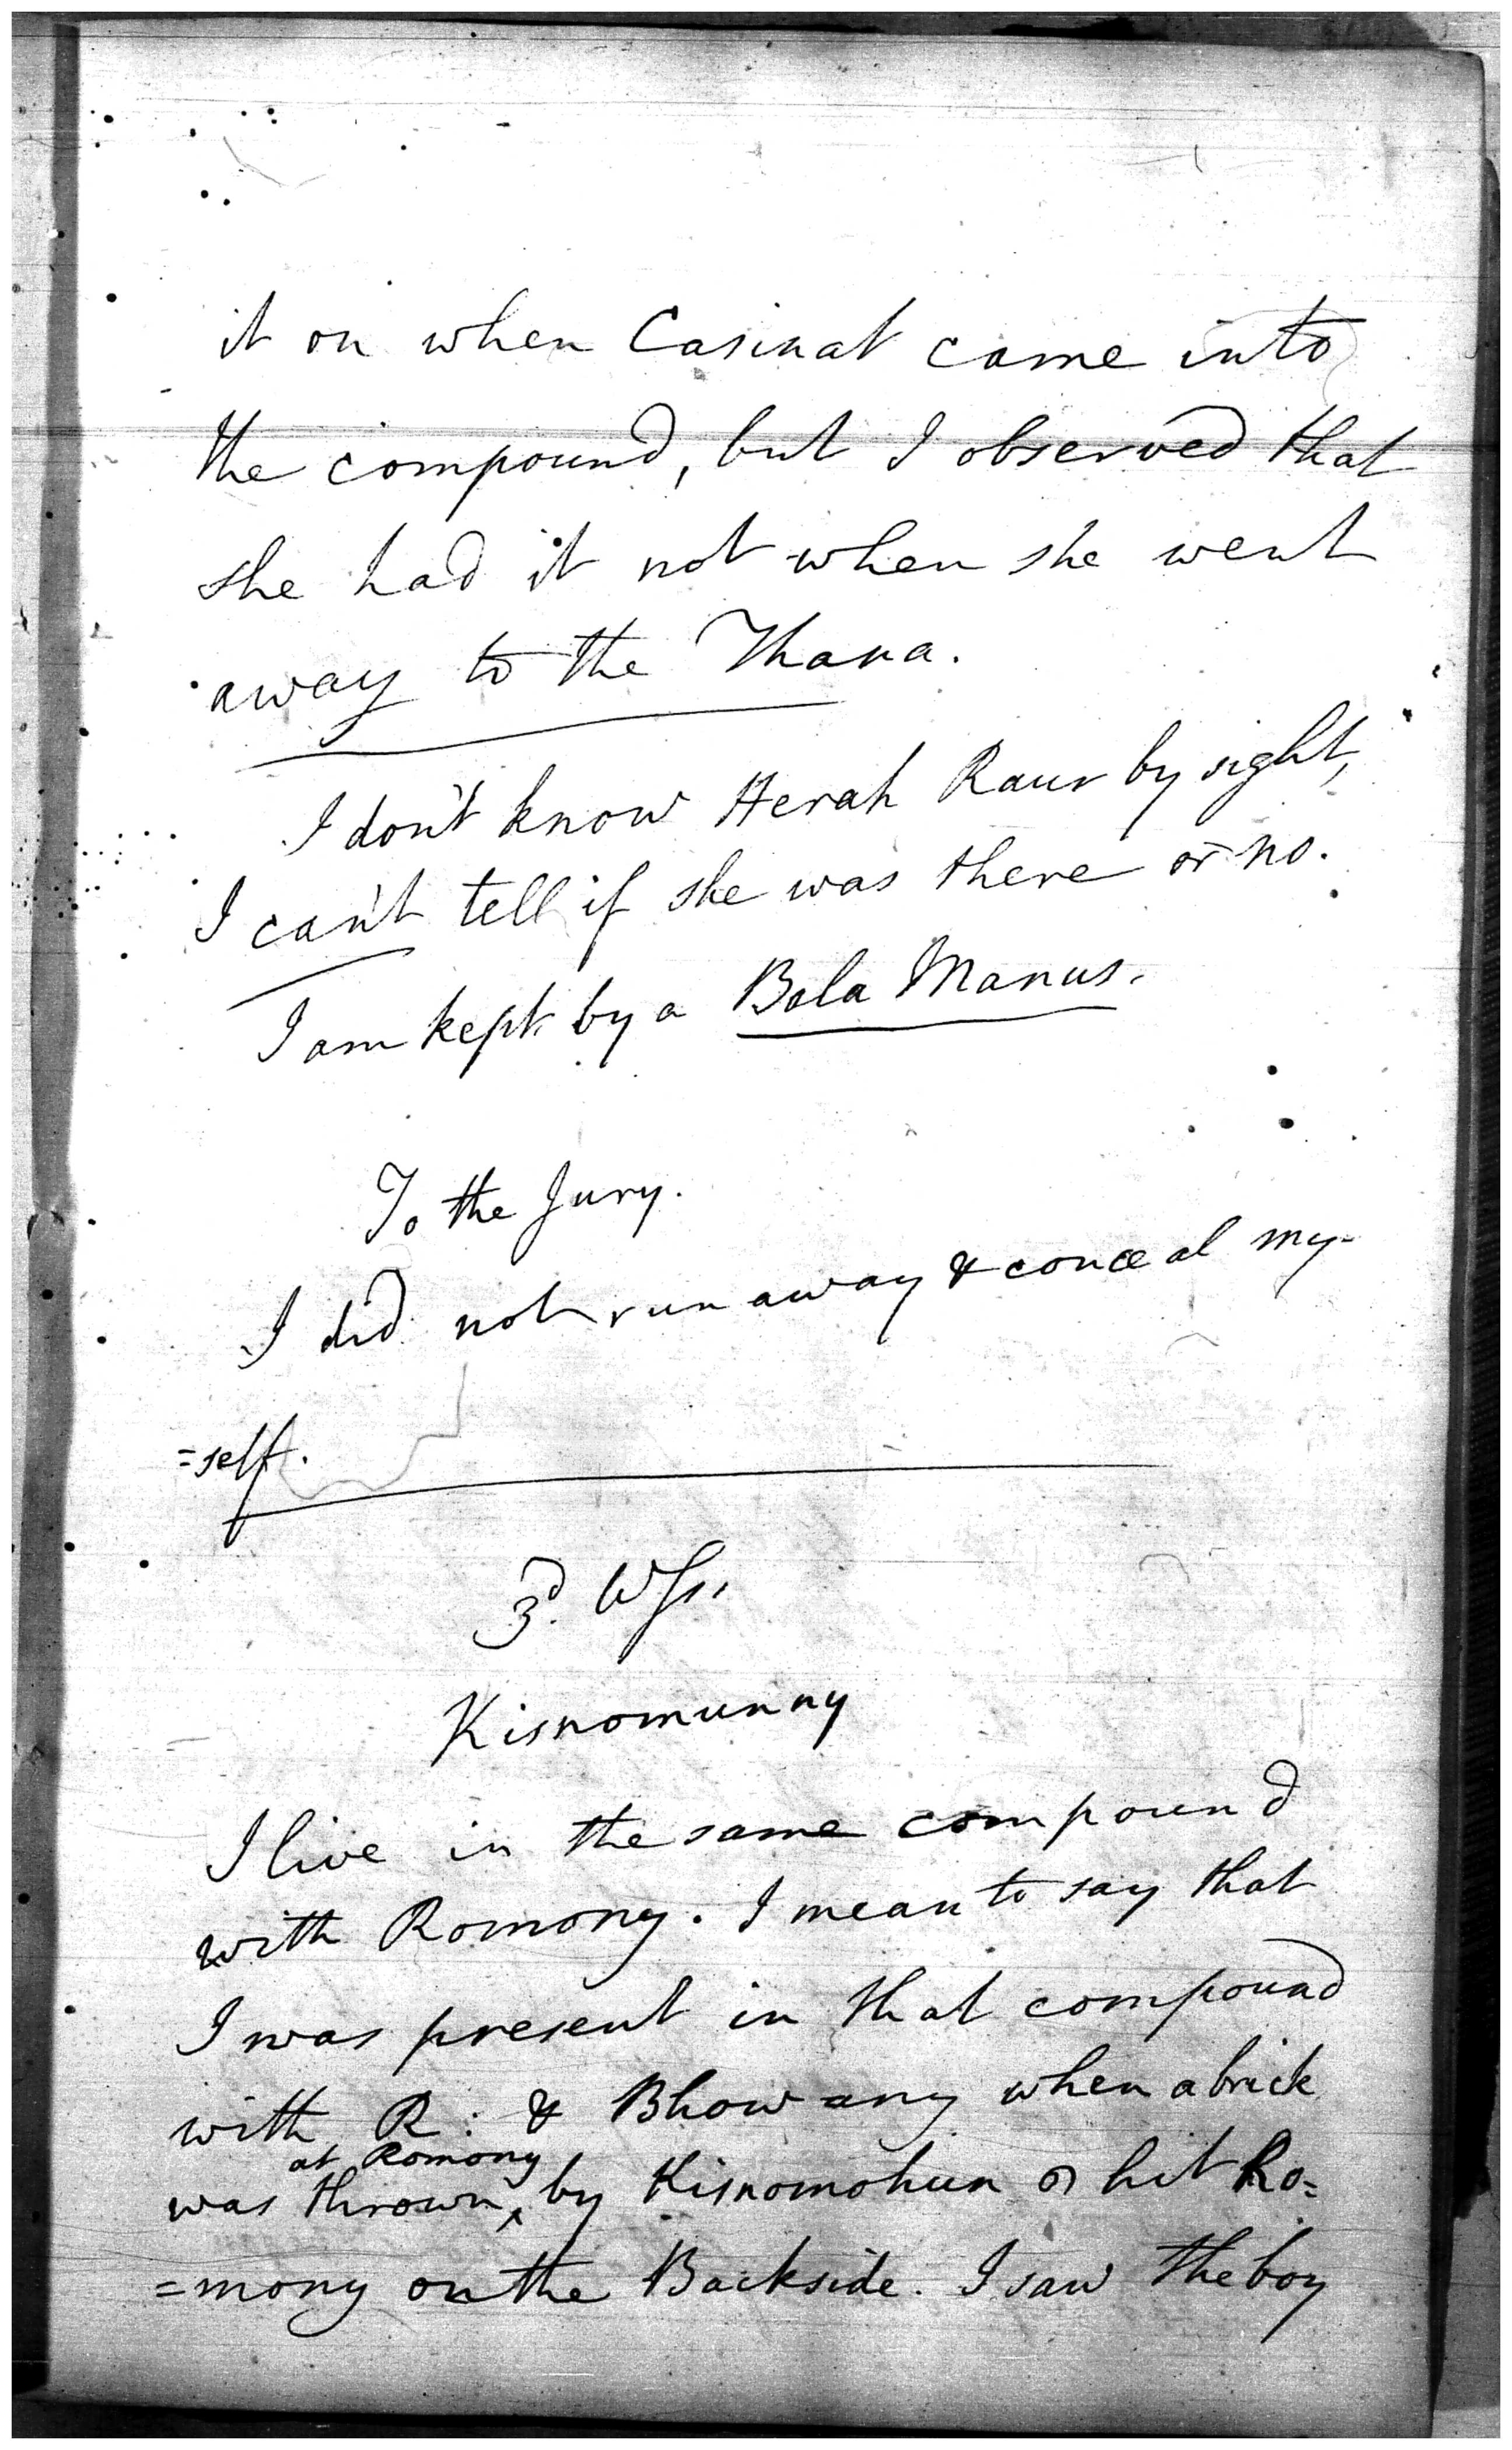 it on when Casinat came into
the compound, but I observed that
she had it not when she went
away to the Thana.
I don't know Herah Raur by sight,
I can't tell if she was there or no.
I am kept by a Bala Manus.
To the Jury.
I did not run away & conceal my-
=self.
3d. Ws.
Kisnomunny
I live in the same compound
with Romony. I mean to say that
I was present in that compound
with R: & Bhowany when a brick
at Romony
was thrown, by Kisnomohun & hit Ro=
=mony on the Backside. I saw the boy